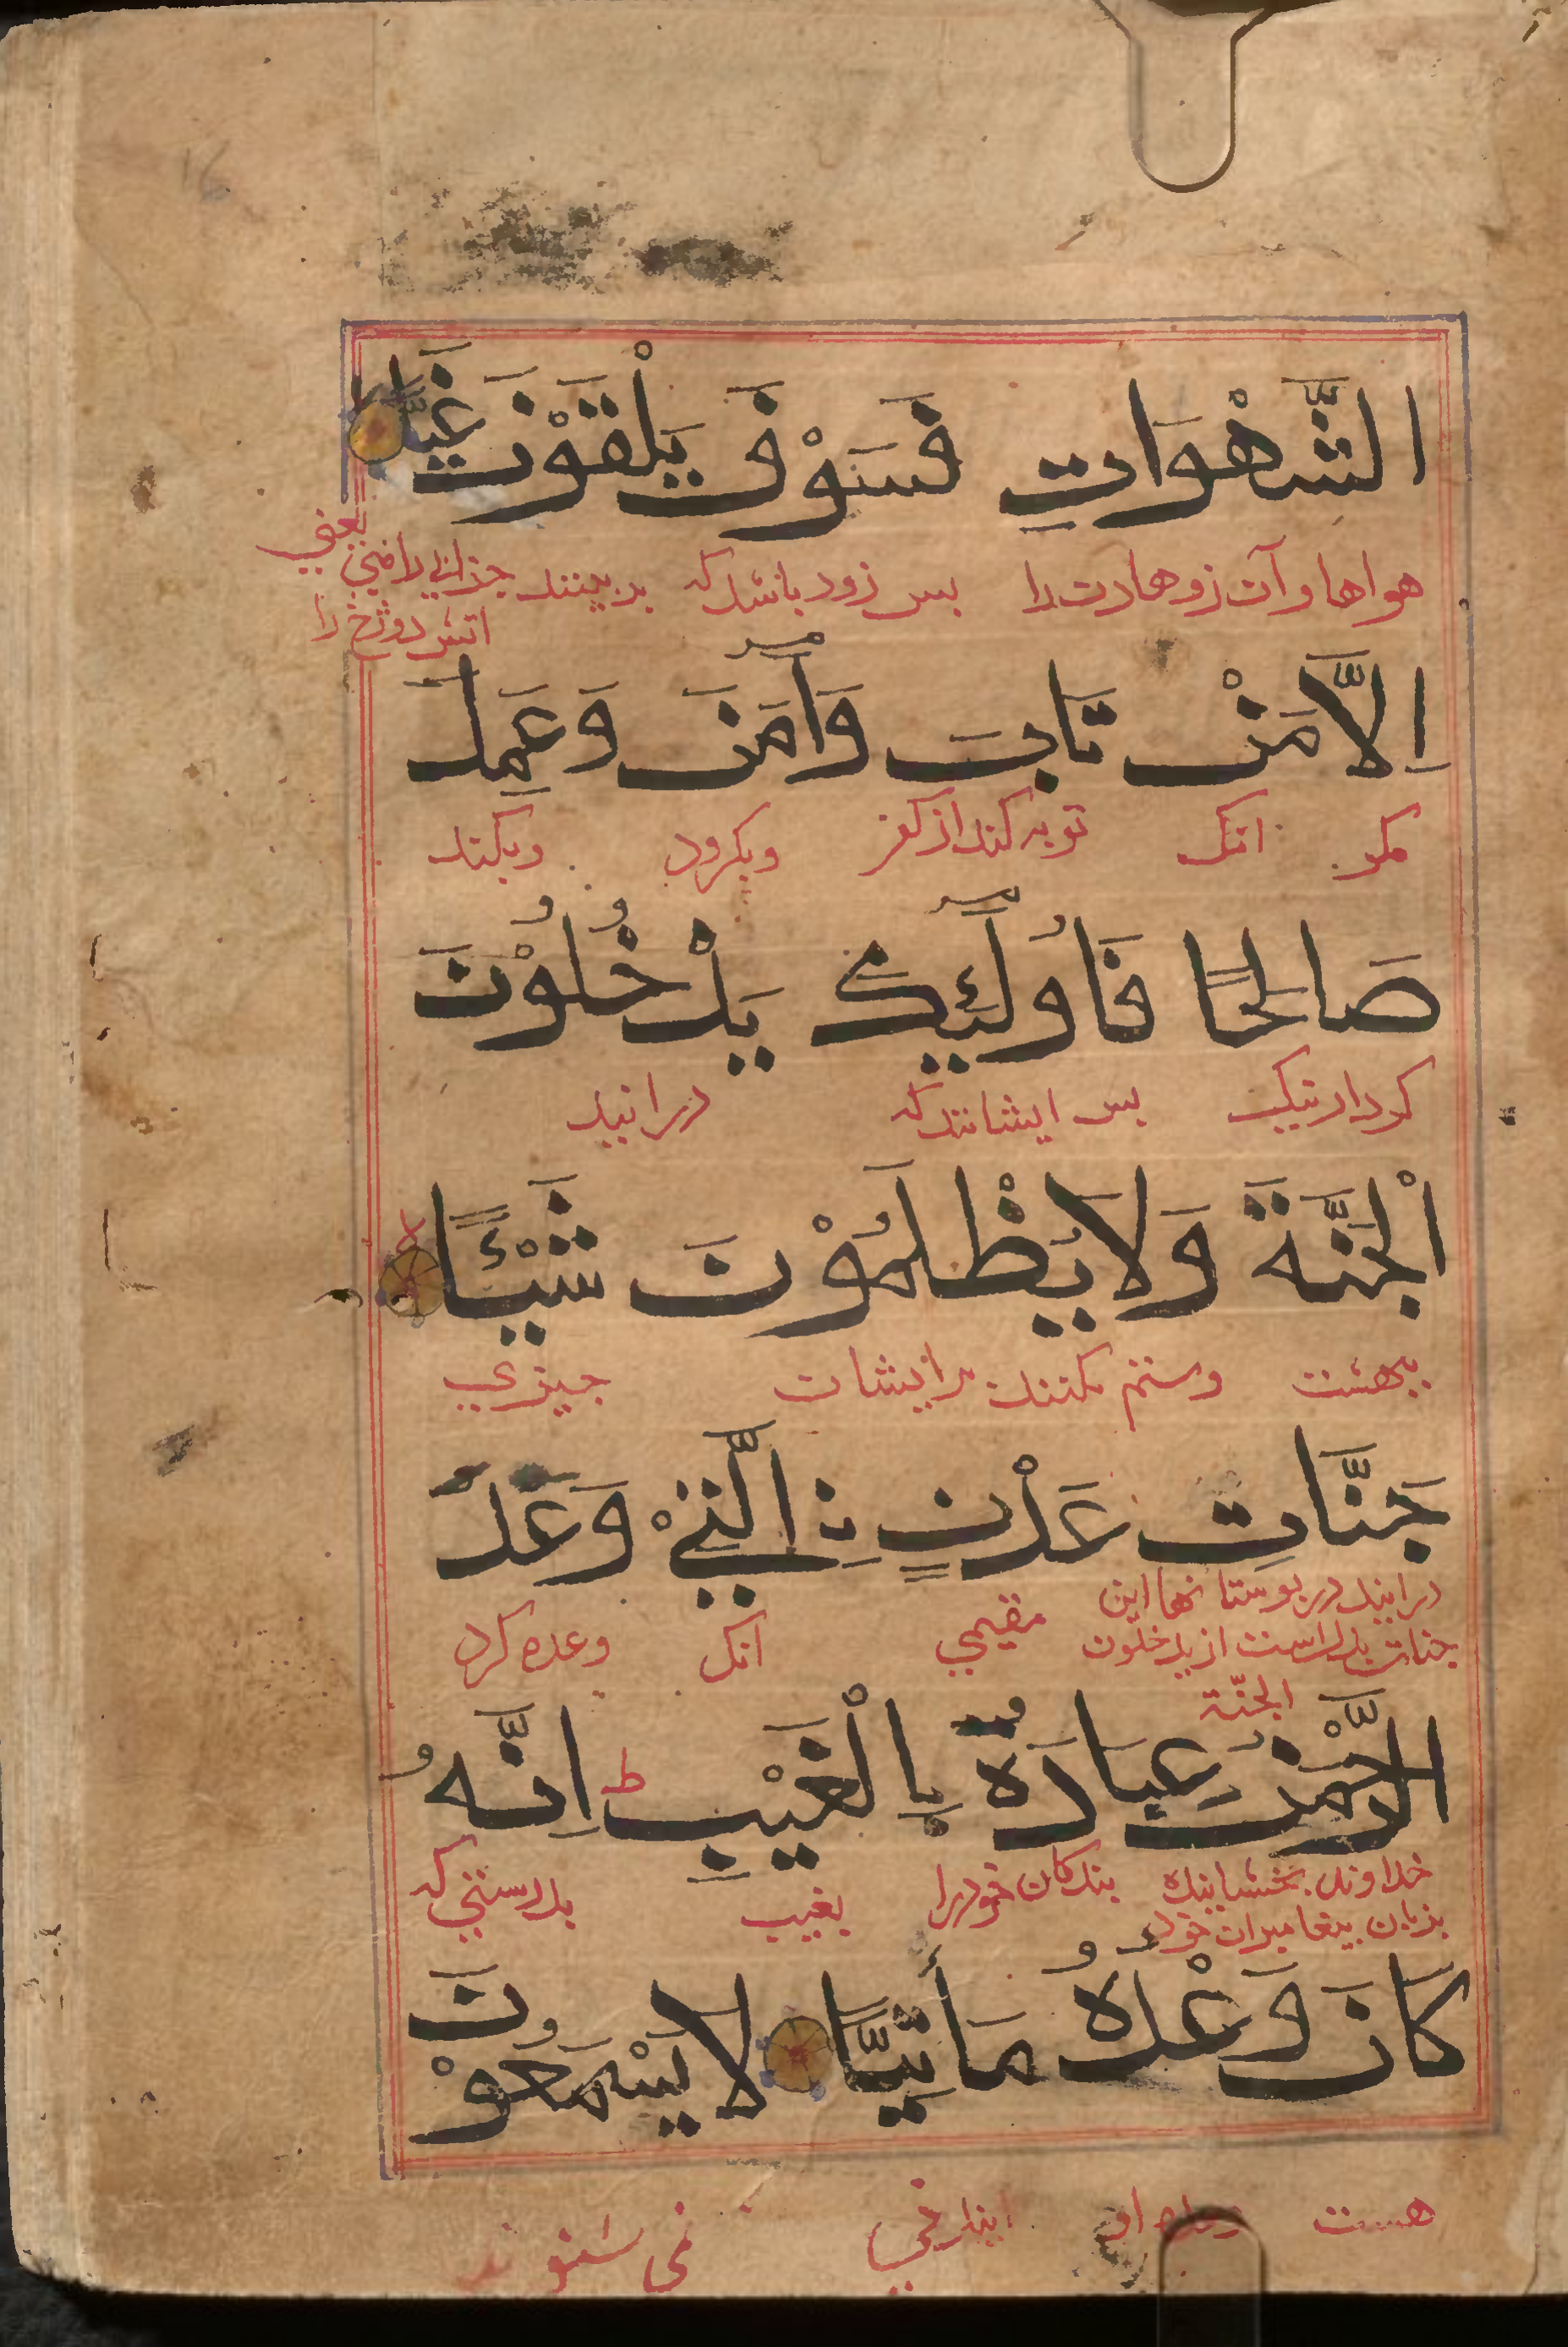 الشَّهْوَاتِ فَسَوْفَ يَلْقَوْنَ غَيًّا
هواها و آن زوهادت را بس زود باشدکه بربینند جزای
یعنی
اتش دوزخ را
اِلَّا مَنْ تَابَ وَآمَنَ وَعَمِلَ
مکر انک توبه کند از کفر وبکرود وبکند
صَالِحًا فَاُولٰٓئِكَ يَدْخُلُوْنَ
کردار نیک بس ایشانندکه درایند
اْلجَنَّةَ وَلَا يُظْلَمُوْنَ شَيْئًا
ببهشت وستم نکنند برایشان جیزی
جَنَّاتِ عَدْنٍ نِ الَّتِيْ وَعَدَ
درایند در بوستانها این مقیمی انک وعده کرد
جنات بدل است از یدخلون
الجنّة
الرَّحْمٰنُ عِبَادَهُ بِالْغَيْبِ ط اِنَّهُ
خداوند بخشاینده بندکان خودرا بغیب بدرستی که
بزبان بیغامبران خود
كَانَ وَعْدُهُ مَأْتِيًّا لَا يَسْمَعُوْنَ
هست او نمی شنوند